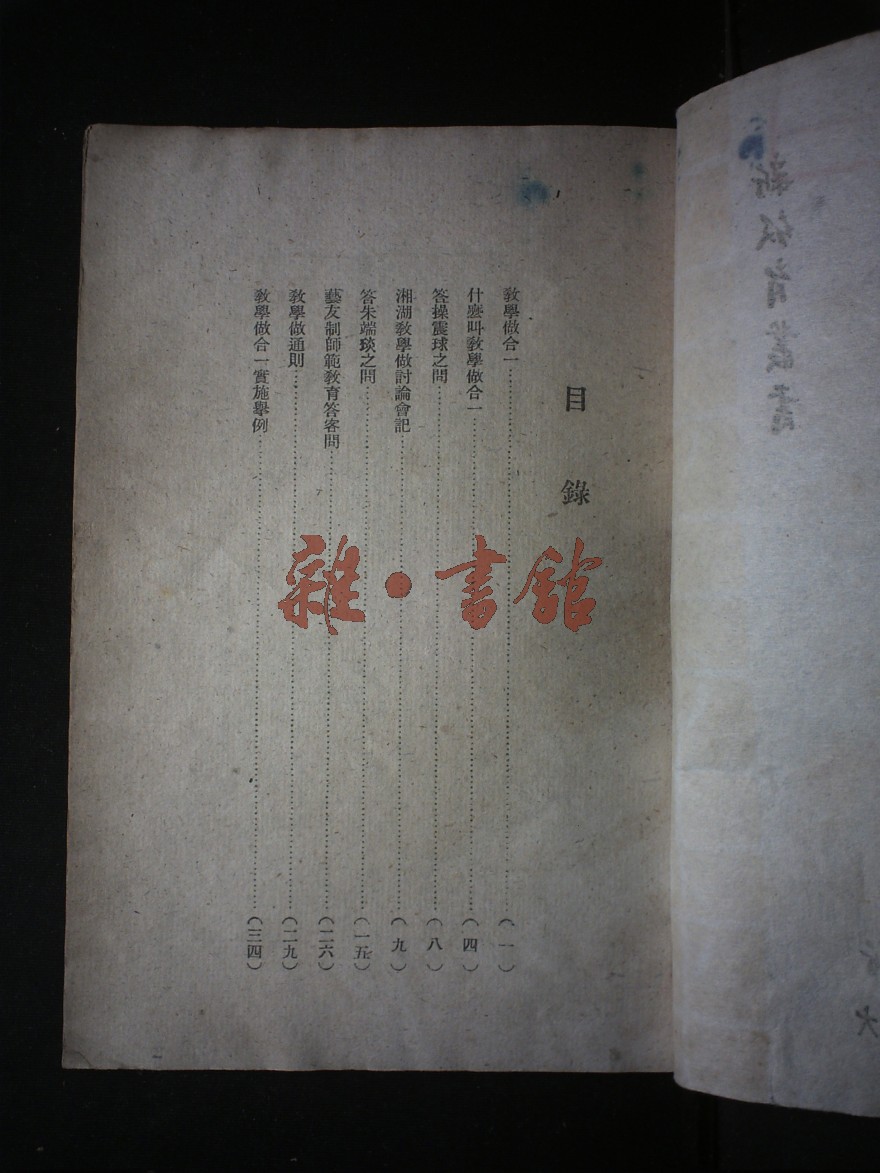 目錄
教學做合一……（一）
什麼叫教學做合一……（四）
答操震球之問……（八）
湘湖教學做討論會記……（九）
答朱端琰之問……（一五）
藝友制師範教育答客問……（二六）
教學做通則……（二九）
教學做合一實施舉例……（三四）
雜·書館
新教育叢書